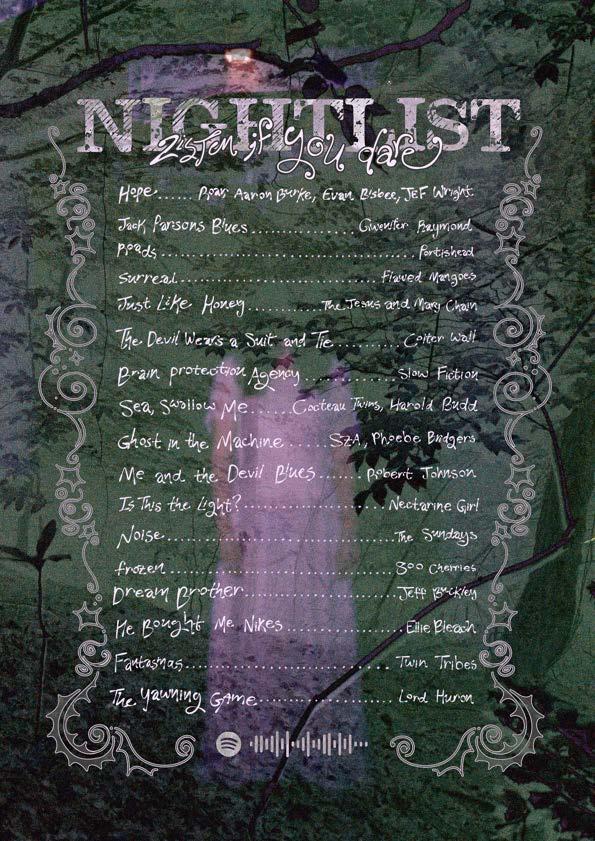 NIGHTLIST
Listen if you dare
Hope...... Roar, Aaron Burke, Evan Bisbee, JEF Wright
Jack Parsons Blues.................... Gwenifer Raymond
Roads.............................................. Portishead
Surreal........................................ Flawed Mangoes
Just Like Honey.................. The Jesus and Mary Chain
The Devil Wears a Suit and Tie........... Colter Wall
Brain protection Agency................ Slow Fiction
Sea, Swallow Me...... Cocteau Twins, Harold Budd
Ghost in the Machine...... SZA, Phoebe Bridgers
Me and the Devil Blues...... Robert Johnson
Is This the Light?...................... Nectarine Girl
Noise....................................... The Sundays
frozen....................................... 800 Cherries
Dream Brother......................... Jeff Buckley
He Bought Me Nikes.................. Ellie Bleach
Fantasmas................................. Twin Tribes
The Yawning Game...................... Lord Huron